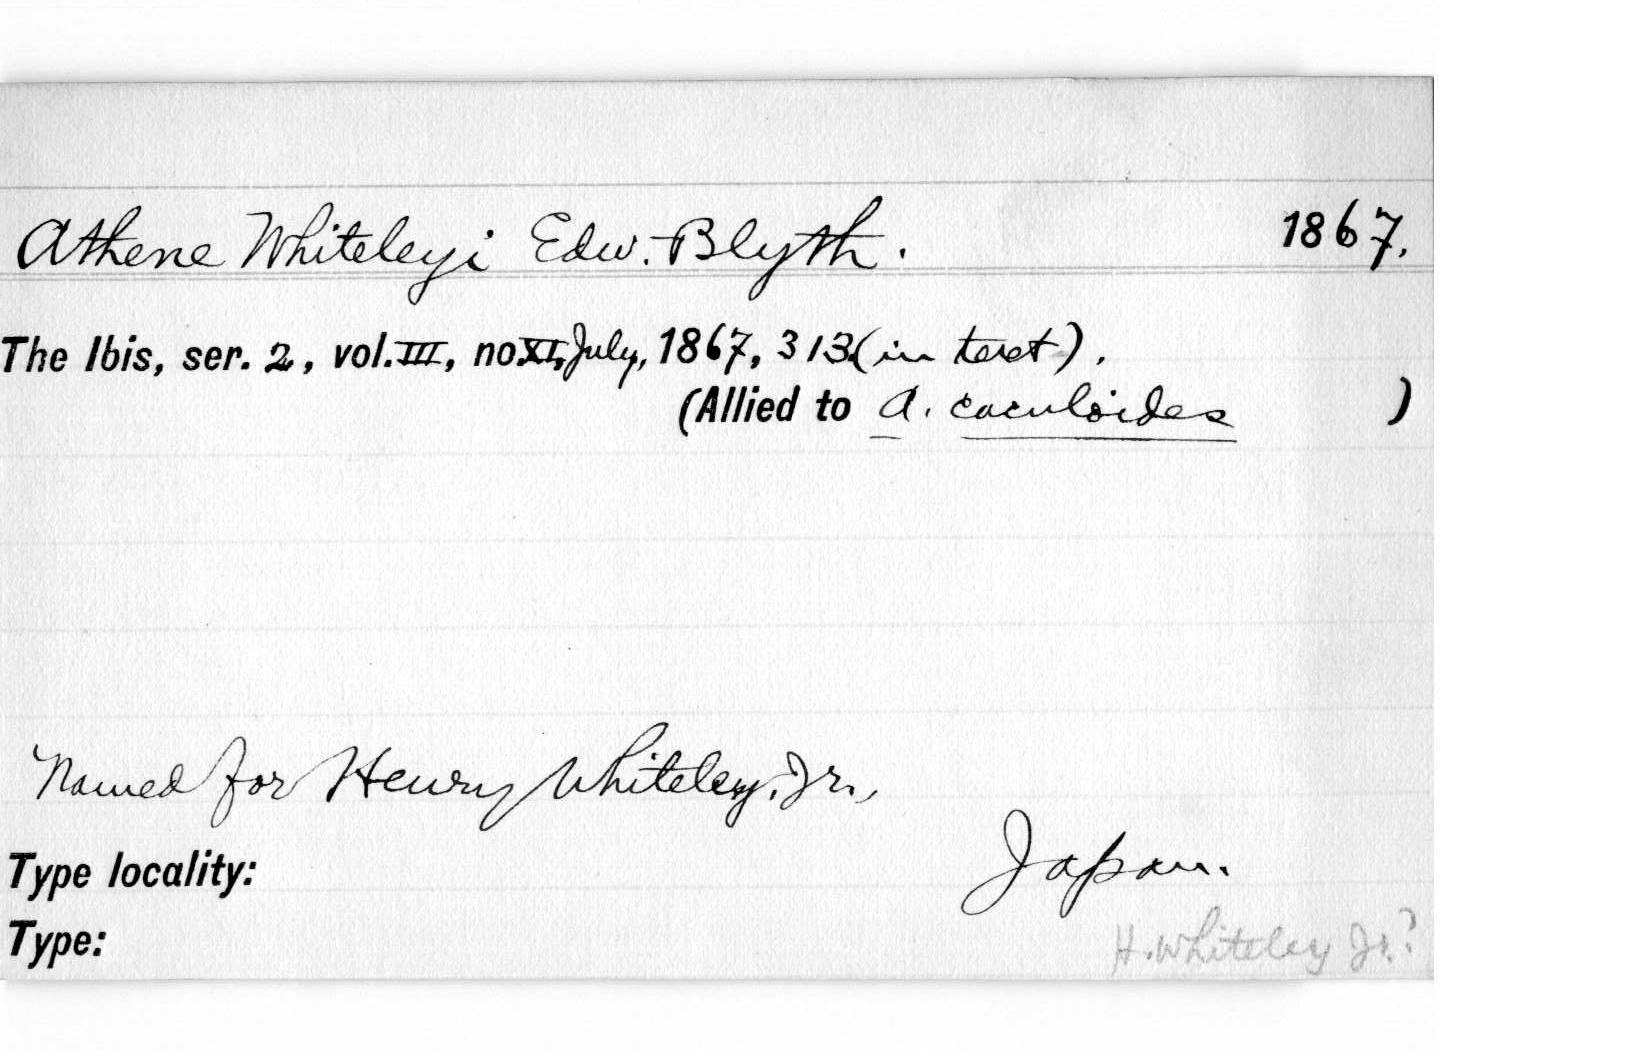 Athene Whiteleyi Edw. Blyth. 1867.
The Ibis, ser. 2, vol. III, no. XI, July, 1867, 313 (in text).
(Allied to A. cuculoides )
Named for Henry Whiteley, Jr.,
Type locality: Japan.
Type: H. Whiteley Jr.?